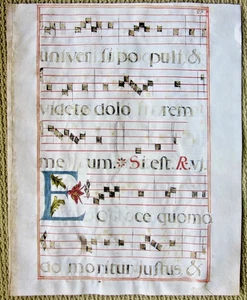 univer si po puli, &
videte dolo rem
me um. Si est. R. vj.
E c ce quomo
do moritur justus &